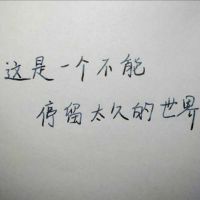 这是一个不能
停留太久的世界